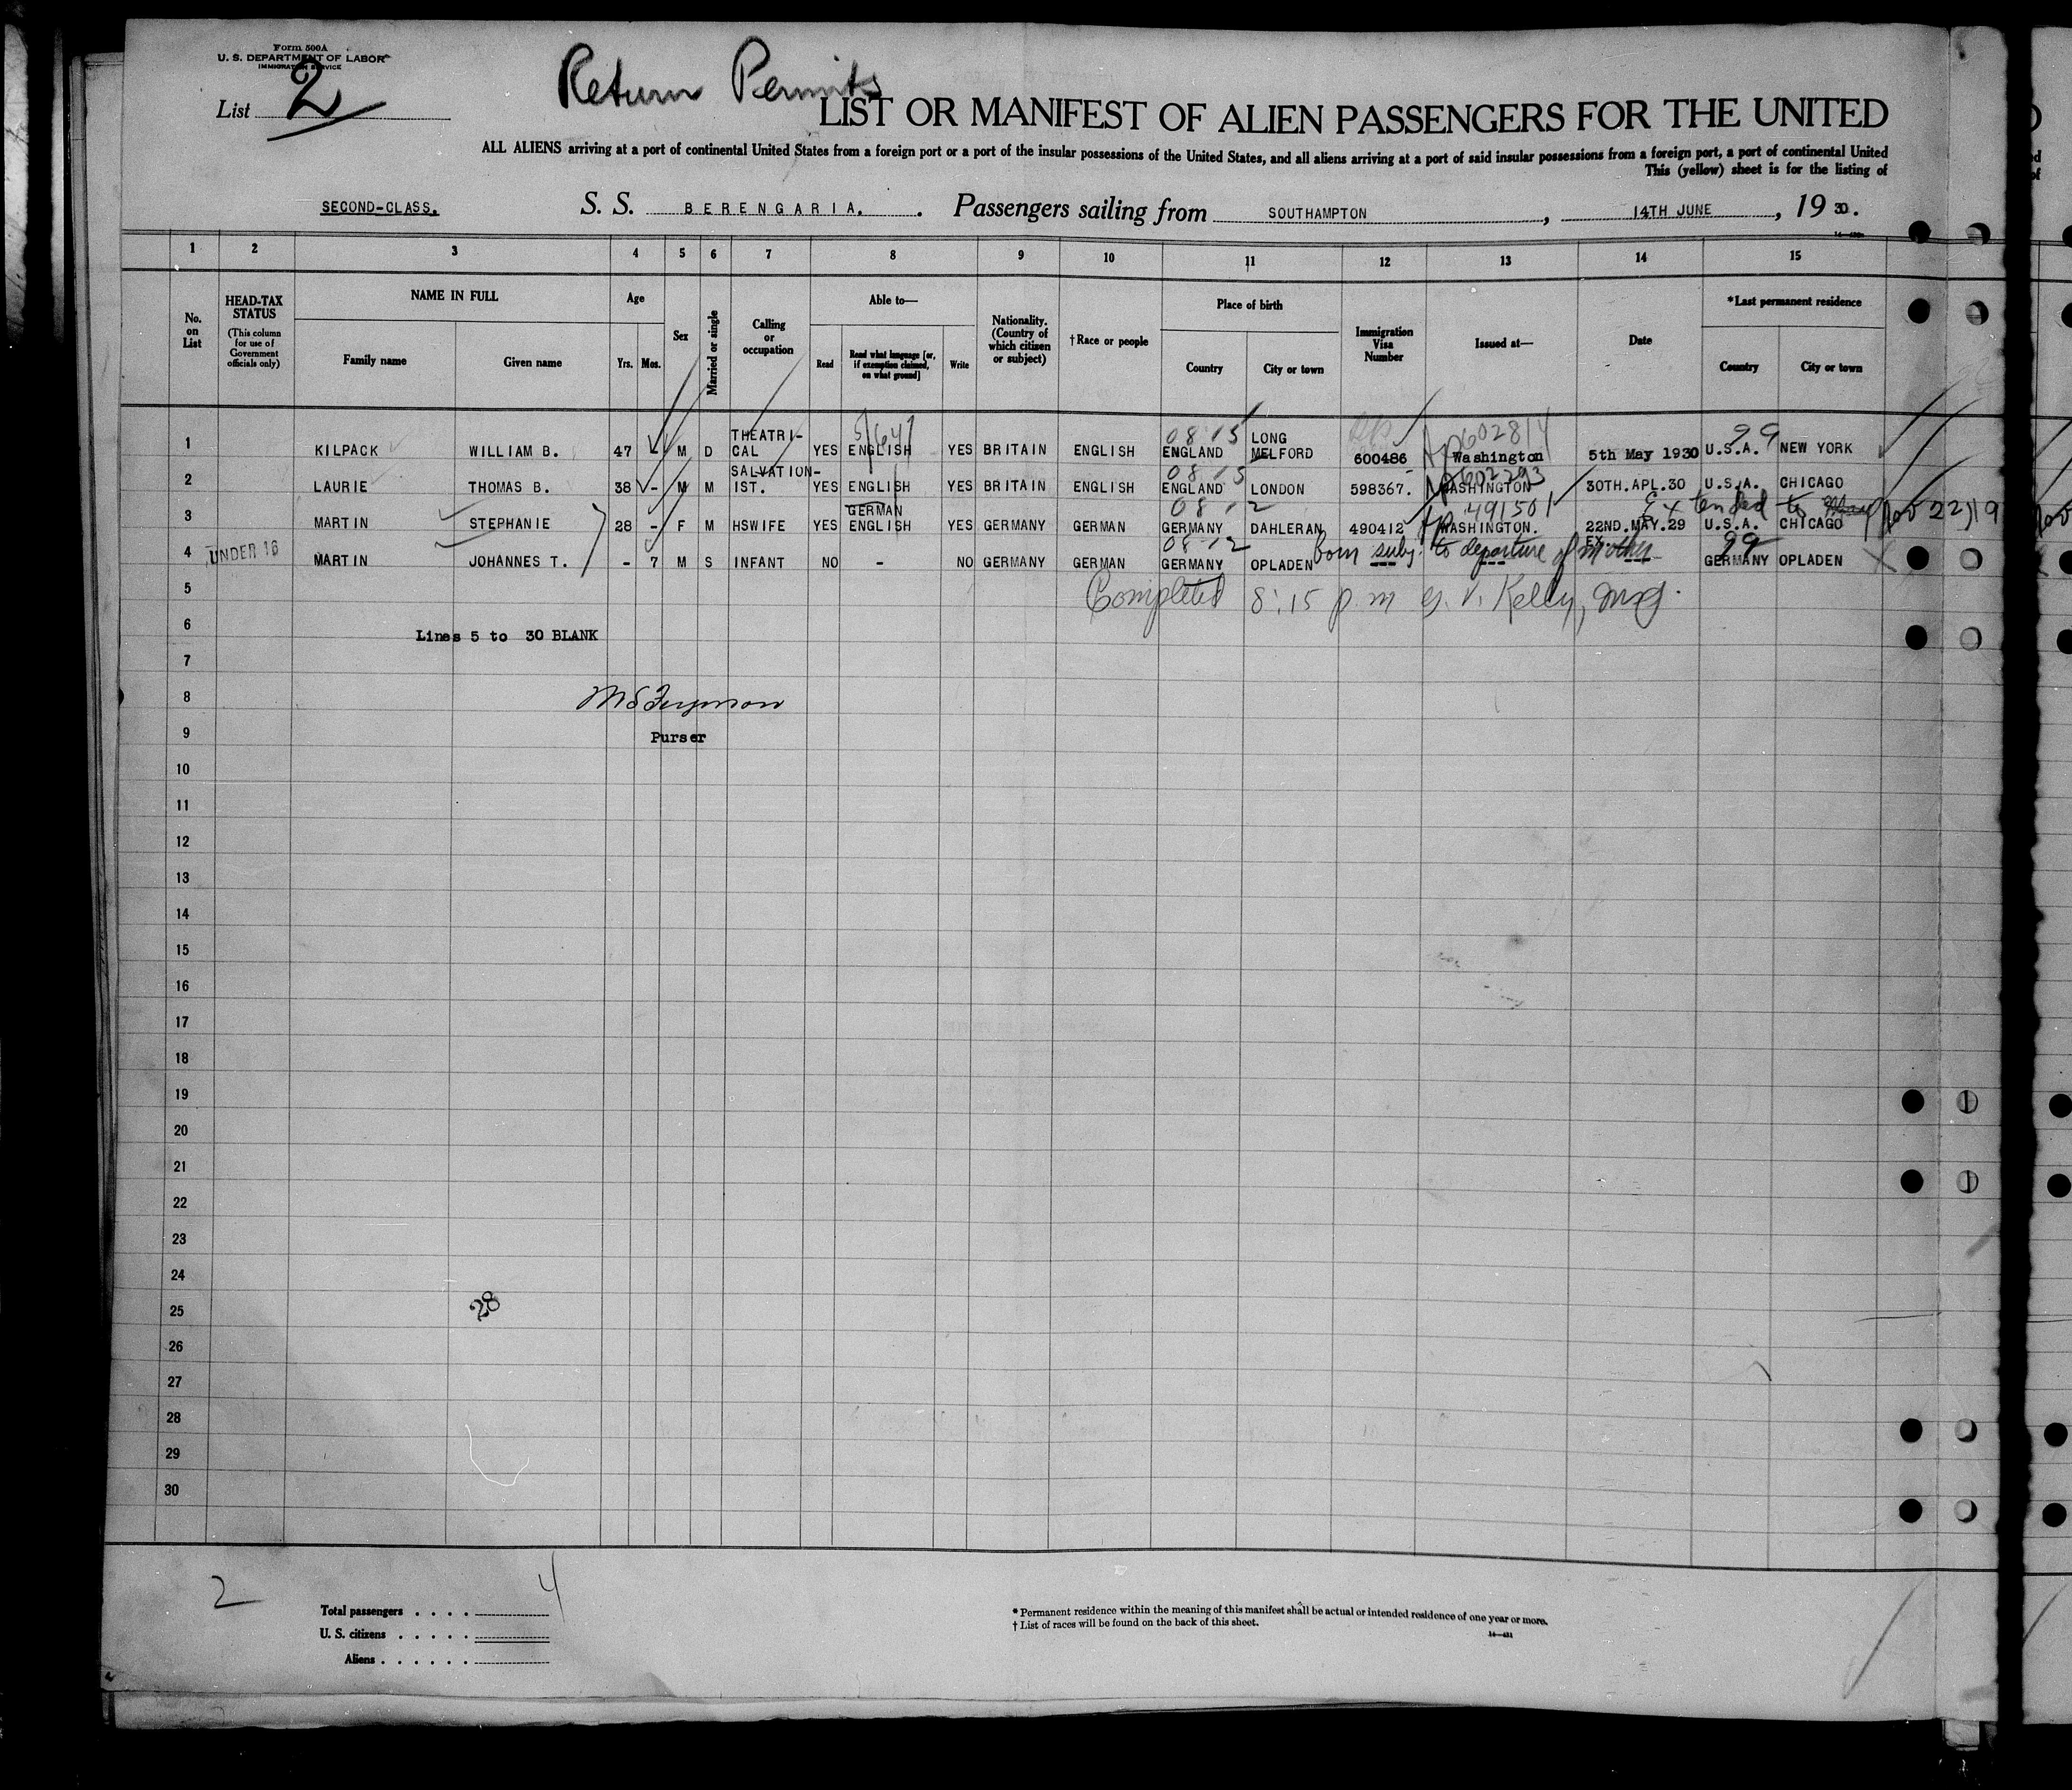 Form 500A
U. S. DEPARTMENT OF LABOR
IMMIGRATION SERVICE
List 2
Return Permits
LIST OR MANIFEST OF ALIEN PASSENGERS FOR THE UNITED
ALL ALIENS arriving at a port of continental United States from a foreign port or a port of the insular possessions of the United States, and all aliens arriving at a port of said insular possessions from a foreign port, a port of continental United
This (yellow) sheet is for the listing of
SECOND-CLASS. S. S. BERENGARIA. Passengers sailing from SOUTHAMPTON, 14TH JUNE, 19 30.
1 2 3 4 5 6 7 8 9 10 11 12 13 14 15
No. on List
HEAD-TAX STATUS
(This column for use of Government officials only)
NAME IN FULL
Family name Given name
Age
Yrs. Mos.
Sex
Married or single
Calling or occupation
Able to—
Read Read what language [or, if exemption claimed, on what ground] Write
Nationality. (Country of which citizen or subject)
†Race or people
Place of birth
Country City or town
Immigration Visa Number
Issued at—
Date
*Last permanent residence
Country City or town
5/647 08 15 602814 99
1 KILPACK WILLIAM B. 47 M D THEATRI-CAL YES ENGLISH YES BRITAIN ENGLISH ENGLAND LONG MELFORD 600486 Washington 5th May 1930 U.S.A. NEW YORK
08 15 602293
2 LAURIE THOMAS B. 38 - M M SALVATION-IST. YES ENGLISH YES BRITAIN ENGLISH ENGLAND LONDON 598367. WASHINGTON 30TH.APL.30 U.S.A. CHICAGO
08 12 491501 Extended to Nov 22/19
3 MARTIN STEPHANIE 28 - F M HSWIFE YES GERMAN ENGLISH YES GERMANY GERMAN GERMANY DAHLERAN 490412 WASHINGTON. 22ND.MAY.29 U.S.A. CHICAGO
08 12 born subj. to departure of mother EX. 99
4 UNDER 16 MARTIN JOHANNES T. - 7 M S INFANT NO - NO GERMANY GERMAN GERMANY OPLADEN --- --- --- GERMANY OPLADEN
5 Completed 8:15 p.m. Kelly,
6 Lines 5 to 30 BLANK
7
8
9 Purser
10
11
12
13
14
15
16
17
18
19
20
21
22
23
24
25 28
26
27
28
29
30
2 4
Total passengers
U. S. citizens
Aliens
* Permanent residence within the meaning of this manifest shall be actual or intended residence of one year or more.
† List of races will be found on the back of this sheet.